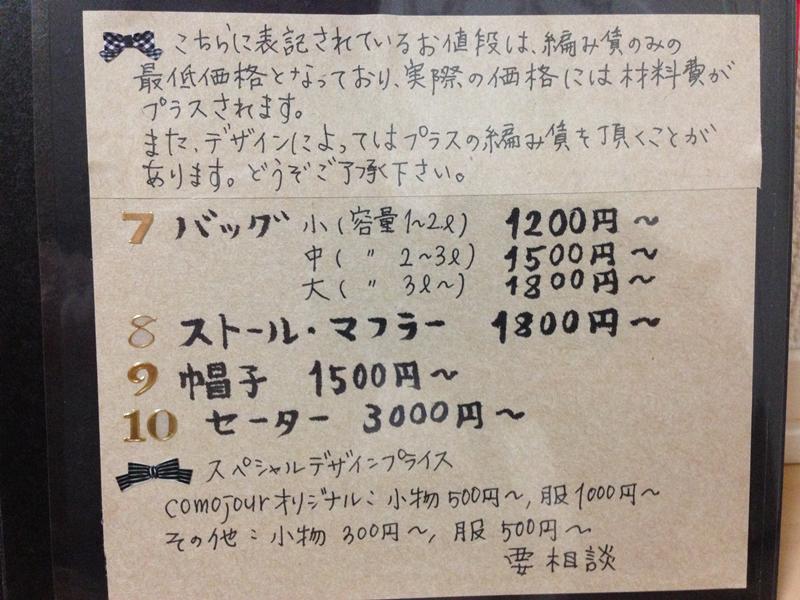 こちらに表記されているお値段は、編み賃のみの
最低価格となっており、実際の価格には材料費が
プラスされます。
また、デザインによってはプラスの編み賃を頂くことが
あります。どうぞご了承下さい。
7 バッグ 小(容量1~2ℓ) 1200円~
中( 〃 2~3ℓ) 1500円~
大( 〃 3ℓ~) 1800円~
8 ストール・マフラー 1800円~
9 帽子 1500円~
10 セーター 3000円~
スペシャルデザインプライス
comojourオリジナル:小物500円~,服1000円~
その他:小物 300円~, 服 500円~
要相談